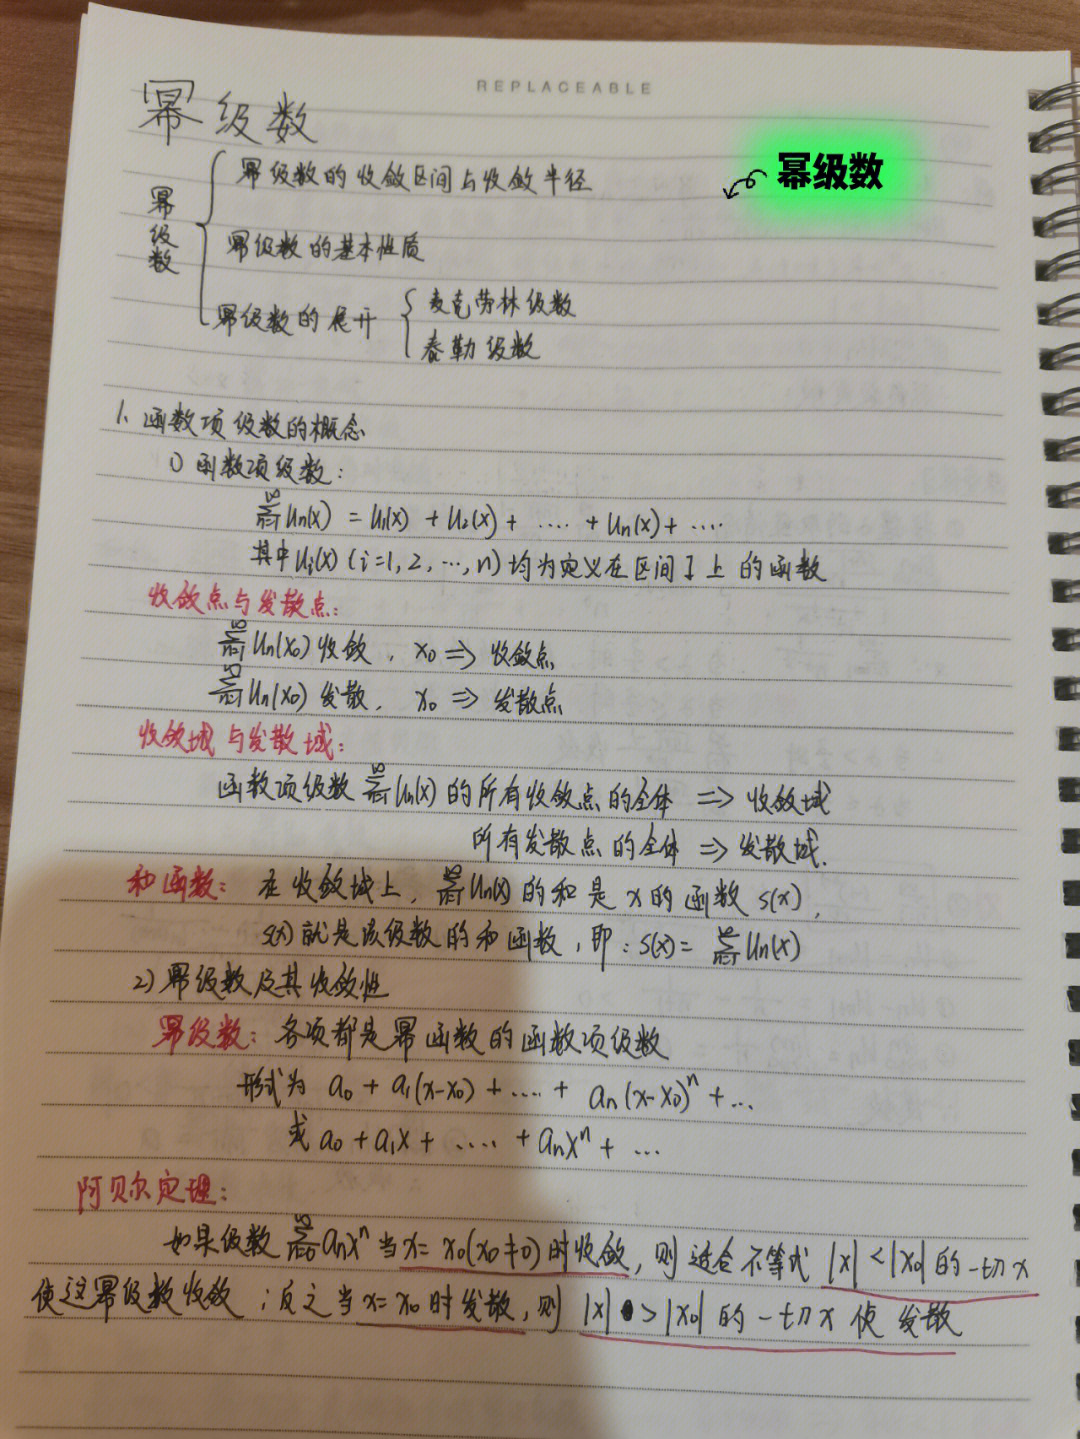 REPLACEABLE
幂级数
幂级数
幂级数
幂级数的收敛区间与收敛半径
幂级数的基本性质
幂级数的展开
麦克劳林级数
泰勒级数
1. 函数项级数的概念
1) 函数项级数:
∑_{n=1}^{∞} Un(x) = U1(x) + U2(x) + .... + Un(x) + ....
其中Ui(x) (i=1, 2, ..., n) 均为定义在区间 I 上的函数
收敛点与发散点:
∑_{n=1}^{∞} Un(x0) 收敛, x0 => 收敛点
∑_{n=1}^{∞} Un(x0) 发散, x0 => 发散点
收敛域与发散域:
函数项级数 ∑_{n=1}^{∞} Un(x) 的所有收敛点的全体 => 收敛域
所有发散点的全体 => 发散域.
和函数: 在收敛域上, ∑_{n=1}^{∞} Un(x) 的和是 x 的函数 s(x),
s(x) 就是该级数的和函数, 即: s(x) = ∑_{n=1}^{∞} Un(x)
2) 幂级数及其收敛性
幂级数: 各项都是幂函数的函数项级数
形式为 a0 + a1(x-x0) + .... + an(x-x0)^n + ...
或 a0 + a1x + .... + anx^n + ...
阿贝尔定理:
如果级数 ∑_{n=0}^{∞} anx^n 当 x = x0 (x0≠0) 时收敛, 则适合不等式 |x| < |x0| 的一切 x
使这幂级数收敛; 反之当 x = x0 时发散, 则 |x| > |x0| 的一切 x 使发散